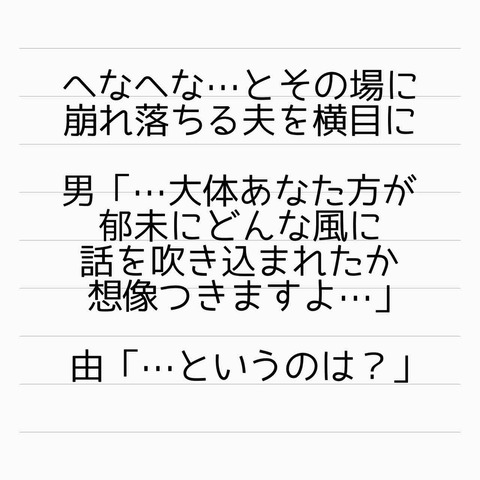 へなへな…とその場に
崩れ落ちる夫を横目に
男「…大体あなた方が
郁未にどんな風に
話を吹き込まれたか
想像つきますよ…」
由「…というのは？」